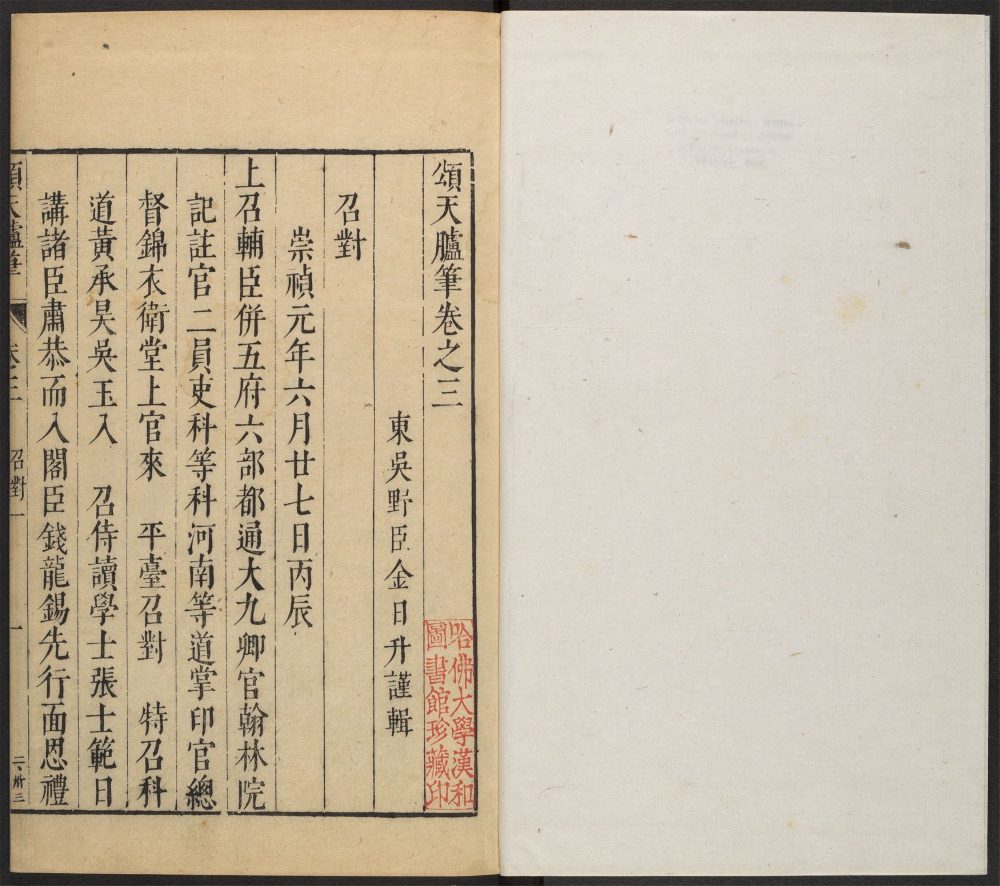 頌天臚筆卷之三
東吳野臣金日升謹輯
哈佛大學漢和
圖書館珍藏印
召對
崇禎元年六月廿七日丙辰
上召輔臣併五府六部都通大九卿官翰林院
記註官二員吏科等科河南等道掌印官總
督錦衣衛堂上官來　平臺召對　特召科
道黃承昊吳玉入　召侍讀學士張士範日
講諸臣肅恭而入閣臣錢龍錫先行面恩禮
頌天臚筆　卷三　召對一　一